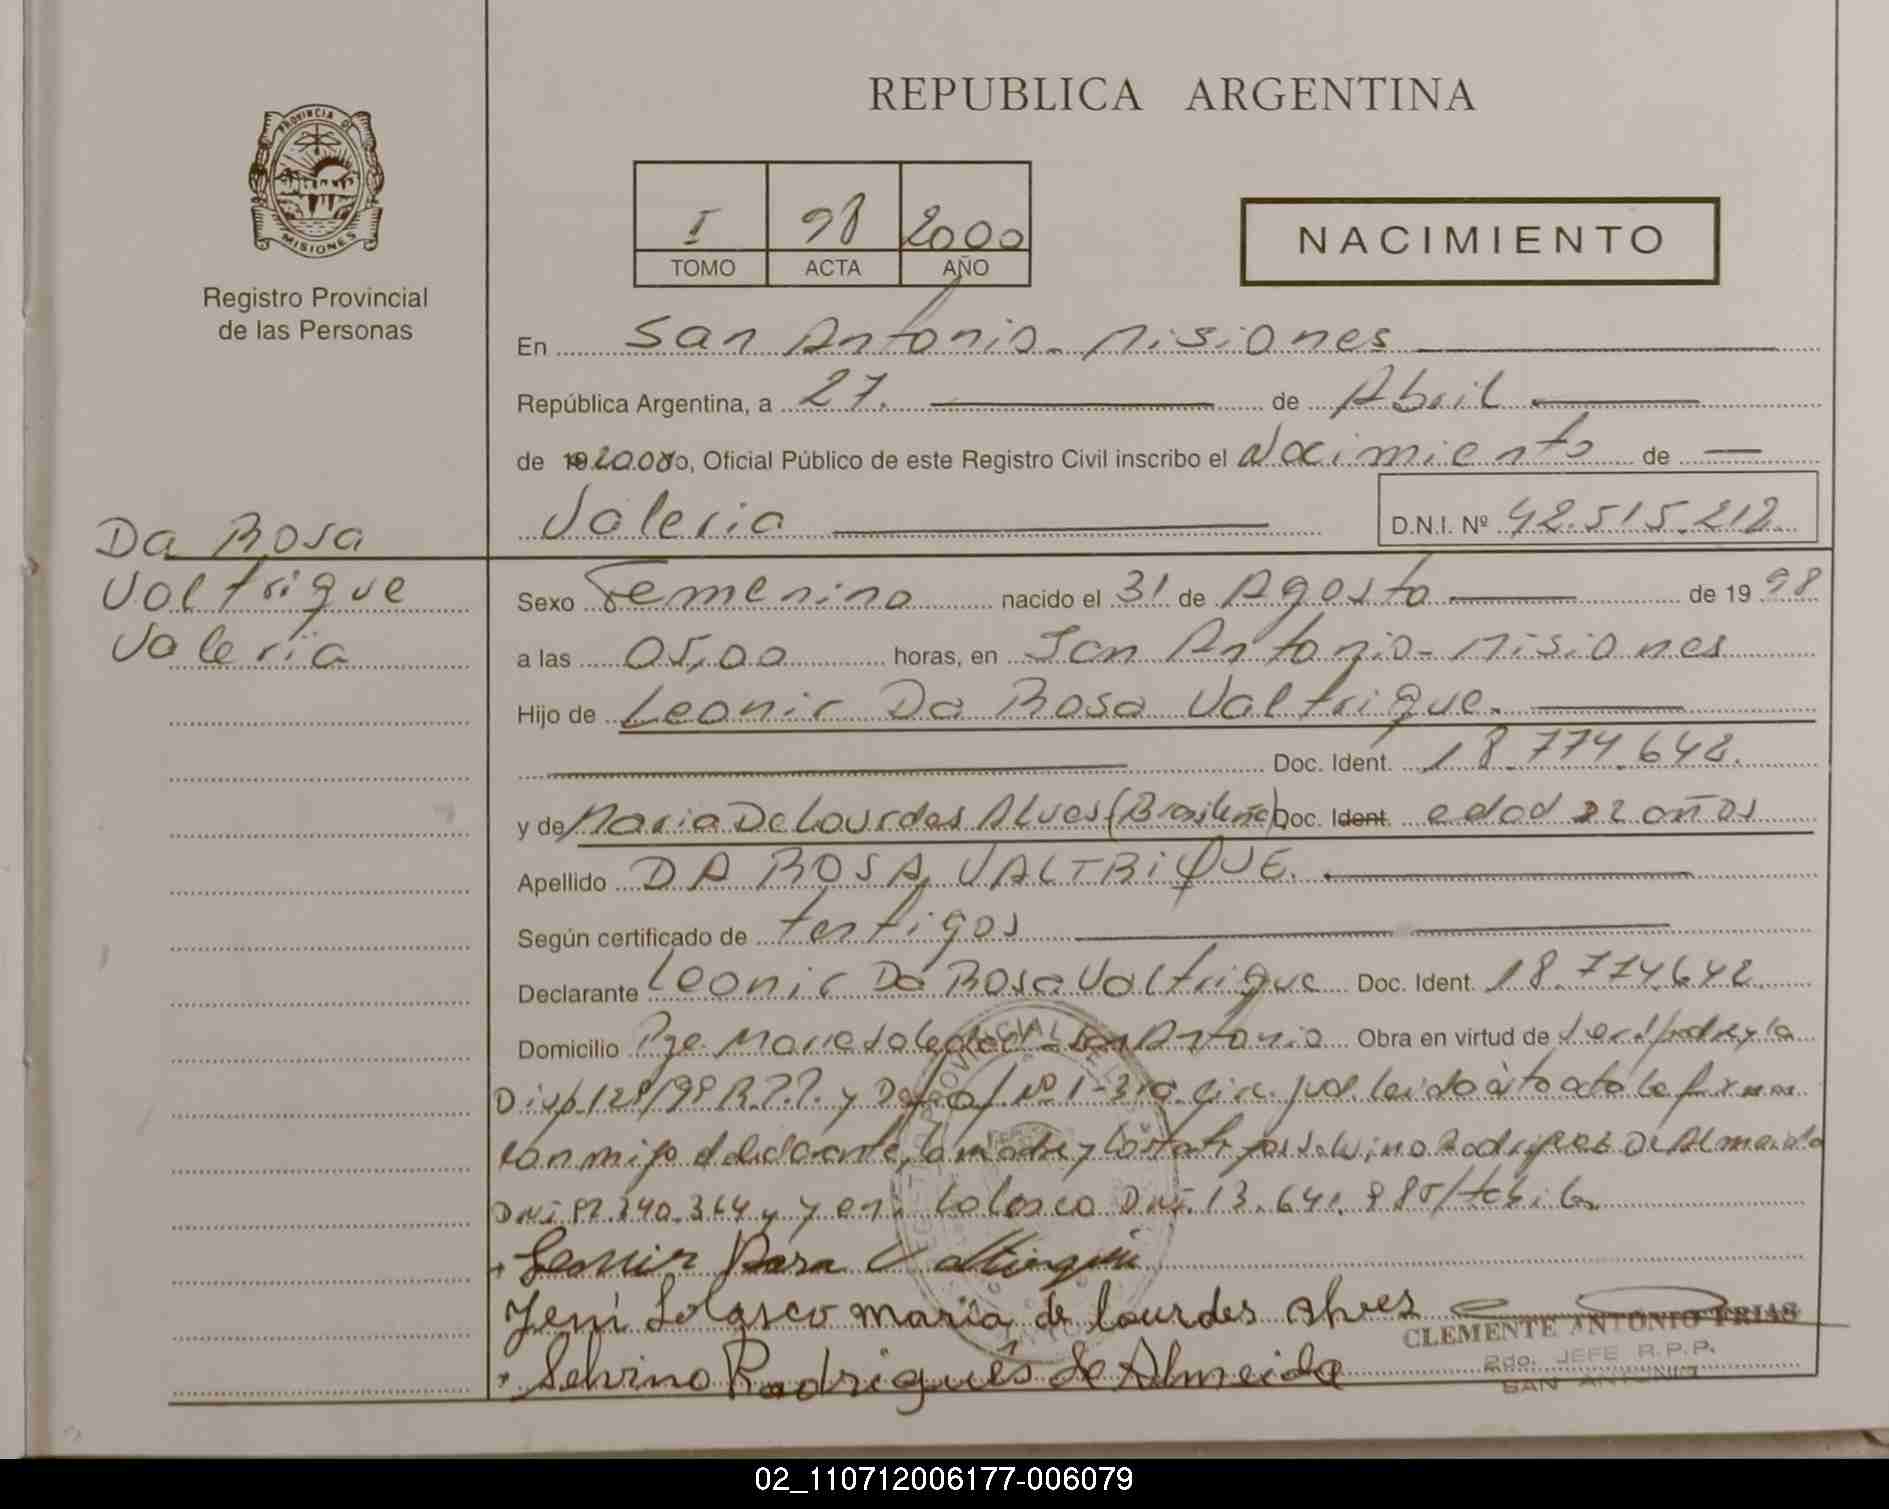 REPUBLICA ARGENTINA
PROVINCIA DE
MISIONES
Registro Provincial
de las Personas
I 98 2000
TOMO ACTA AÑO
NACIMIENTO
En San Antonio - Misiones
República Argentina, a 27. de Abril
de 2000 yo, Oficial Público de este Registro Civil inscribo el Nacimiento de
Valeria D.N.I. Nº 42.515.212
Da Rosa
Valtrique
Valeria
Sexo Femenino nacido el 31 de Agosto de 1998
a las 05,00 horas, en San Antonio - Misiones
Hijo de Leonir Da Rosa Valtrique.
Doc. Ident. 18.774.642.
y de Maria De Lourdes Alves (Brasileña) Doc. Ident. edad 22 años
Apellido DA ROSA VALTRIQUE.
Según certificado de testigos
Declarante Leonir Da Rosa Valtrique Doc. Ident. 18.774.642
Domicilio Pje. Maria Soledad - San Antonio Obra en virtud de ser el padre y la
Disp. 128/98 R.P.P. y Nº 1 - 3ra. Cir. Jud. leido el acta la firman
conmigo el declarante, la madre y los testigos Selvino Rodrigues De Almeida
DNI y Yeni Lolasco DNI. 13.641.
Leonir Rosa Valtrique
Yeni Lolasco maria de lourdes Alves
Selvino Rodrigues de Almeida
CLEMENTE ANTONIO FRIAS
2do. JEFE R.P.P.
SAN ANTONIO
02_110712006177-006079